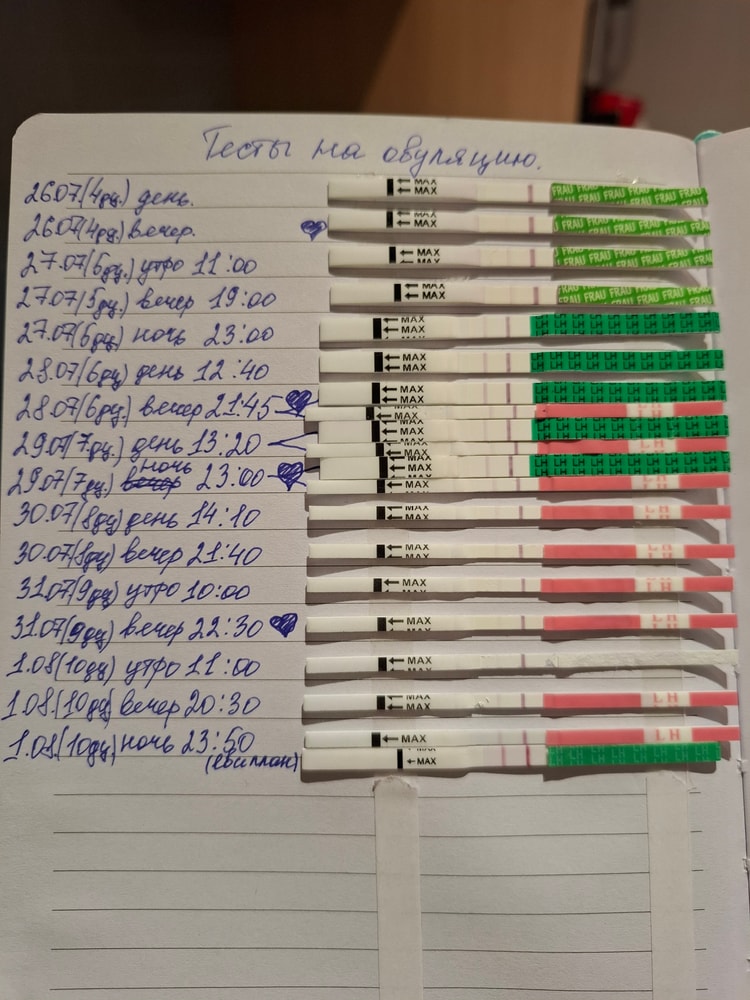 Тесты на овуляцию.
26.07(4дц.) день. MAX MAX FRAU FRAU FRAU FRAU
26.07(4дц.) вечер. MAX MAX FRAU FRAU FRAU FRAU
27.07(5дц.) утро 11:00 MAX FRAU FRAU FRAU FRAU
27.07(5дц) вечер 19:00 MAX MAX FRAU FRAU FRAU FRAU
27.07(5дц) ночь 23:00 MAX MAX LH LH LH LH LH LH LH LH
28.07(6дц) день 12:40 MAX MAX LH LH LH LH LH LH LH LH
28.07(6дц.) вечер 21:45 MAX MAX LH LH LH LH LH LH LH LH
MAX MAX LH
29.07(7дц.) день 13:20 MAX MAX LH LH LH LH LH LH LH LH
MAX LH
ночь
29.07(7дц) вечер 23:00 MAX MAX LH LH LH LH LH LH LH LH
MAX LH
30.07(8дц) день 14:10 MAX LH
30.07(8дц) вечер 21:40 MAX LH
31.07(9дц) утро 10:00 MAX LH
31.07(9дц) вечер 22:30 MAX LH
1.08(10дц) утро 11:00 MAX
1.08.(10дц) вечер 20:30 MAX LH
1.08.(10дц) ночь 23:50 MAX LH
(евиплан) MAX LH LH LH LH LH LH LH LH